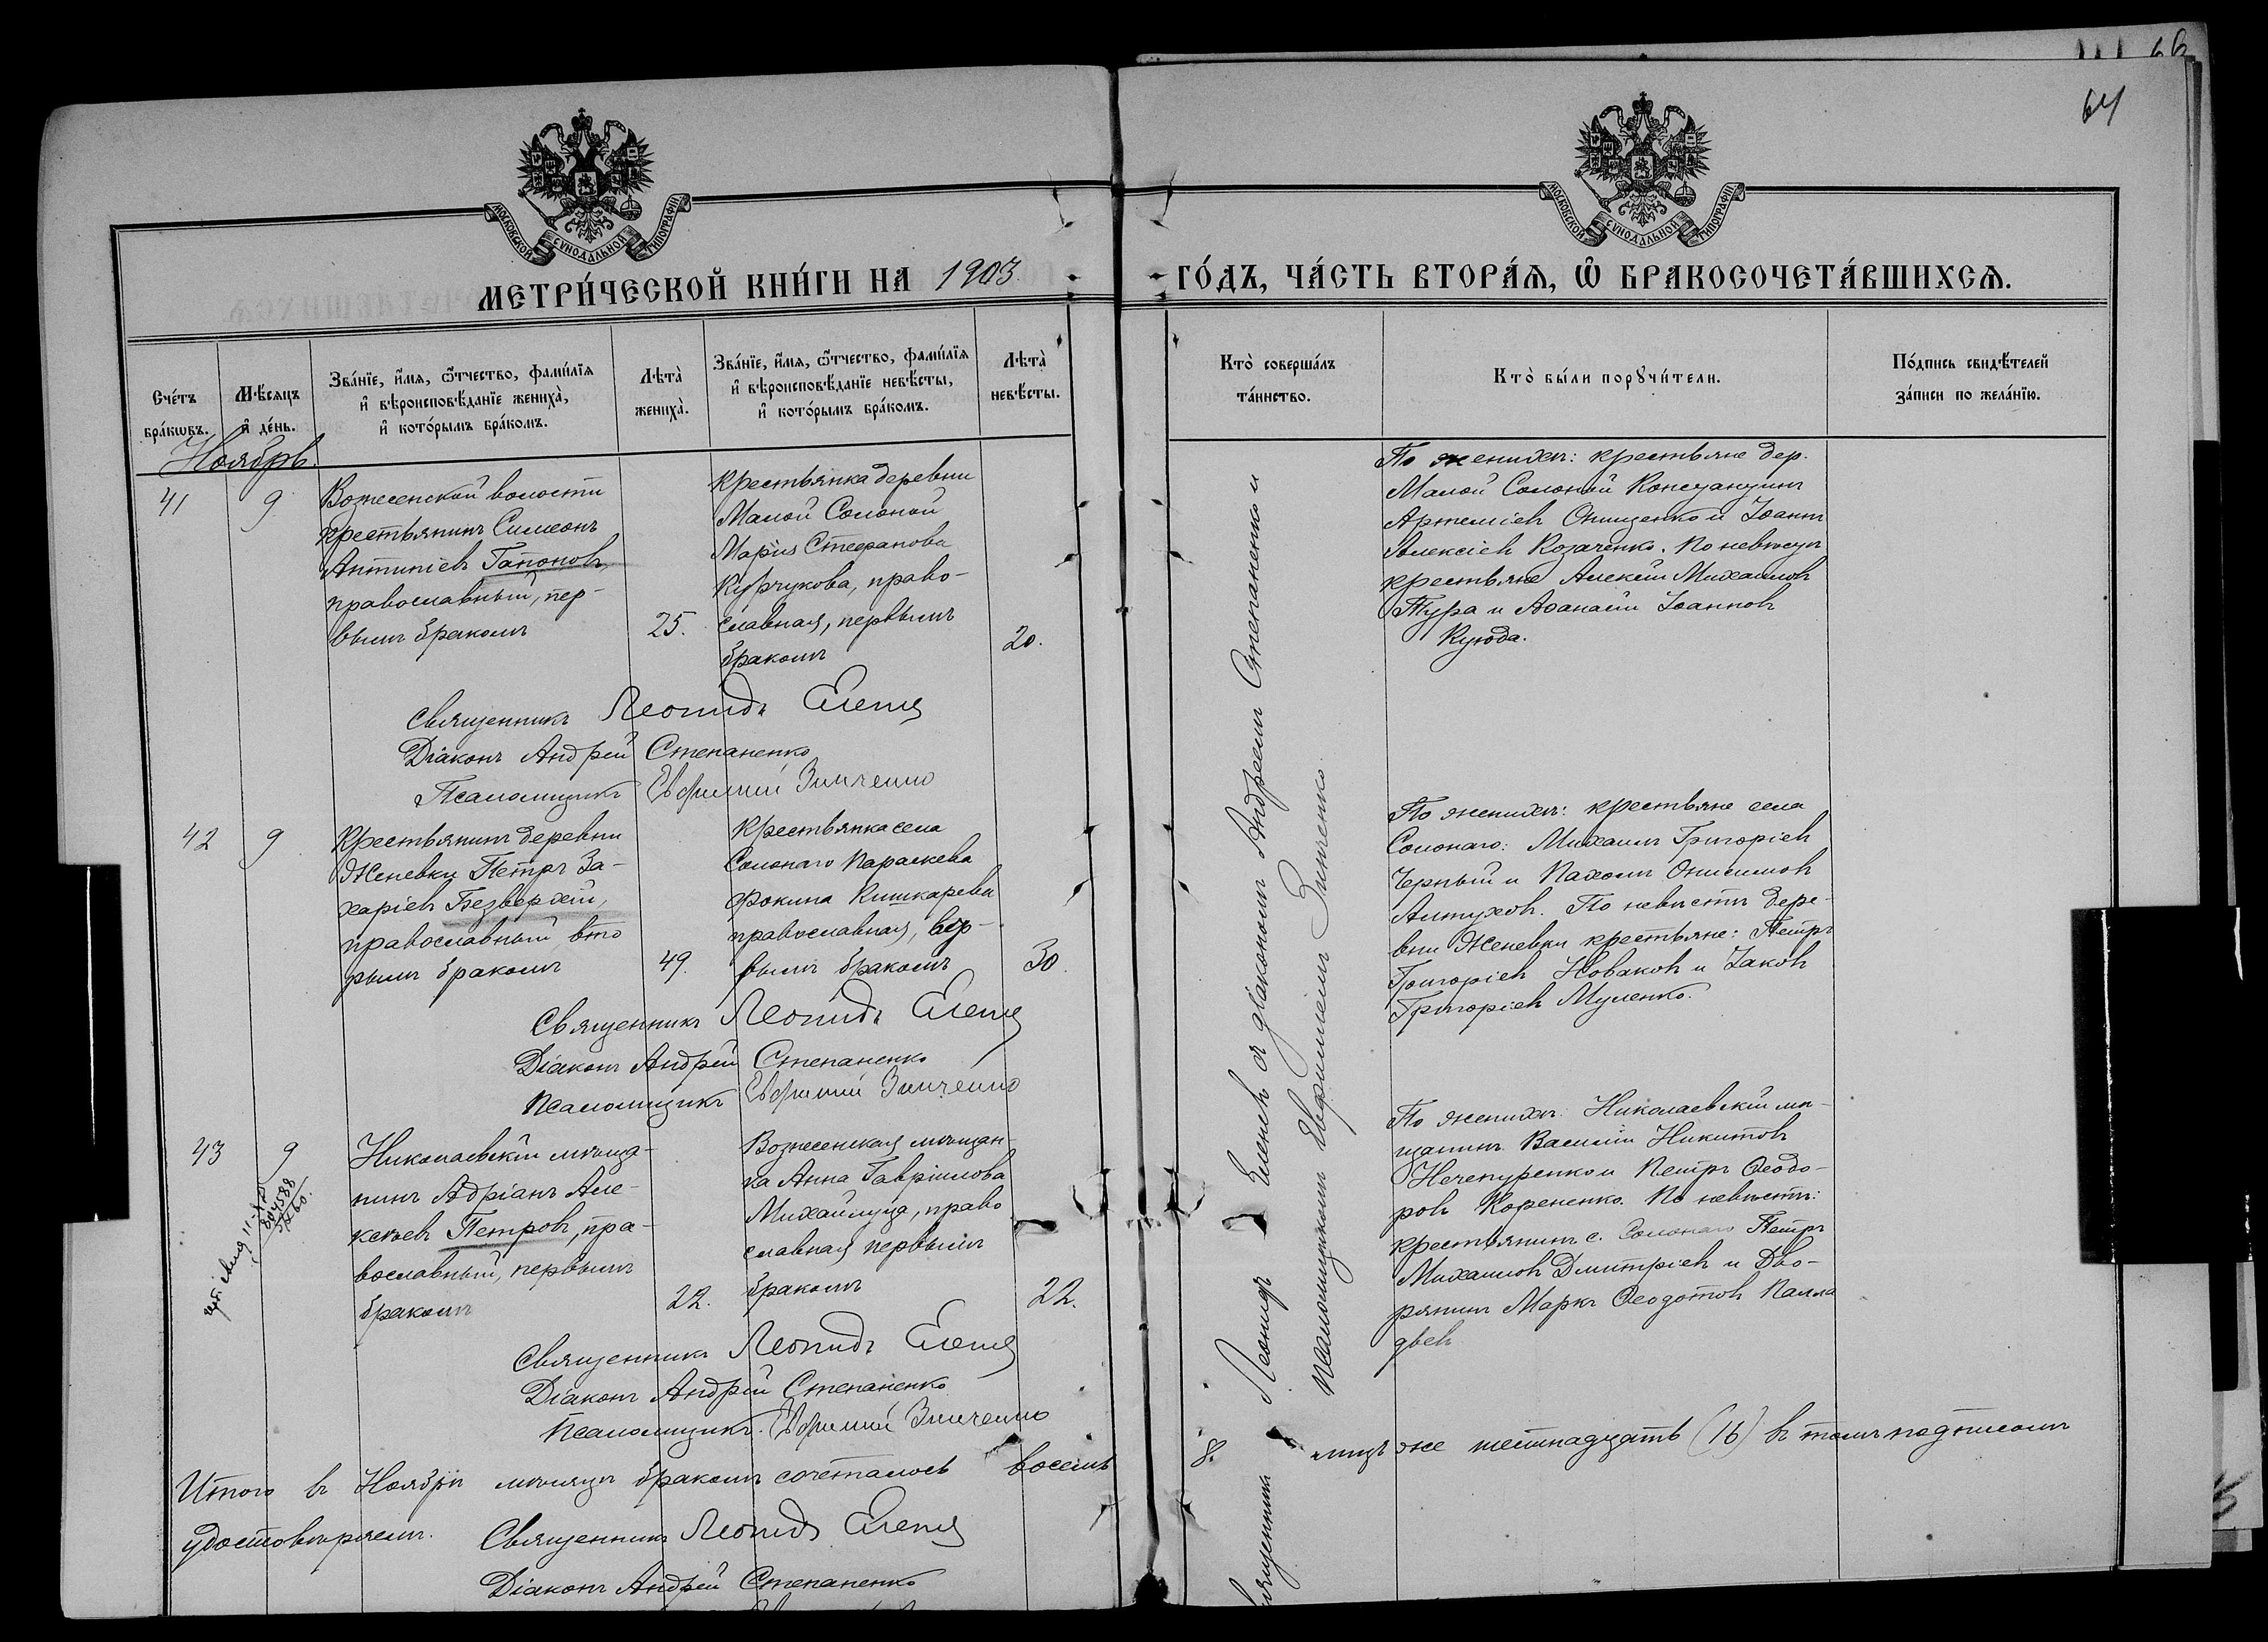 64
МОСКОВСКОЙ СУНОДАЛЬНОЙ ТИПОГРАФІИ
МОСКОВСКОЙ СУНОДАЛЬНОЙ ТИПОГРАФІИ
МЕТРИ́ЧЕСКОЙ КНИ́ГИ НА 1903
ГО́ДЪ, ЧА́СТЬ ВТОРА́Я, Ѽ БРАКОСОЧЕТА́ВШИХСЯ.
Сче́тъ бра́кѡвъ.
Мѣ́сяцъ и҆ де́нь.
Зва́нїе, и҆́мя, ѻ҆́тчество, фами́лїя
и҆ вѣроисповѣ́данїе жениха̀,
и҆ кото́рымъ бра́комъ.
Лѣта̀
жениха̀.
Зва́нїе, и҆́мя, ѻ҆́тчество, фами́лїя
и҆ вѣроисповѣ́данїе невѣ́сты,
и҆ кото́рымъ бра́комъ.
Лѣта̀
невѣ́сты.
Кто̀ соверша́лъ
та́инство.
Кто̀ бы́ли порꙋчи́тели.
По́дпись свидѣ́телей
за́писи по жела́нїю.
Ноябрь.
41
9
Вознесенской волости
крестьянинъ Симеонъ
Антипіевъ Гапоновъ,
православный, пер-
вымъ бракомъ
25.
Крестьянка деревни
Малой Солоной
Марія Стефанова
право-
славная, первымъ
бракомъ
20.
По женихѣ: крестьяне дер.
Малой Солоной
Артеміевъ Онищенко и Іоаннъ
Алексіевъ Козаченко. По невѣстѣ
крестьяне Алексій Михаиловъ
Тура и Аѳанасій Іоанновъ
Куюда.
Священникъ Леонидъ Еленевъ
Діаконъ Андрей Степаненко
Псаломщикъ Евфимій Зинченко
42
9
Крестьянинъ деревни
Женевки Петръ За-
харіевъ Безверхій,
православный вто
рымъ бракомъ
49.
Крестьянка села
Солонаго Параскева
Фокина Кишкарева
православная, пер-
вымъ бракомъ
30.
По женихѣ: крестьяне села
Солонаго: Михаилъ Григоріевъ
Черный и Пахомъ Онисимовъ
Алтуховъ. По невѣстѣ дере-
вни Женевки крестьяне: Петръ
Григоріевъ Новаковъ и Іаковъ
Григоріевъ Муленко.
Священникъ Леонидъ Еленевъ
Діаконъ Андрей Степаненко
Псаломщикъ Евфимій Зинченко
43
9
Николаевскій мѣща-
нинъ Адріанъ Але-
ксѣевъ Петровъ, пра-
вославный, первымъ
бракомъ
22.
Вознесенская мѣщан-
ка Анна Гавріилова
Михайлуца, право
славная первымъ
бракомъ
22.
По женихѣ: Николаевскій мѣ-
щанинъ Василій Никитовъ
Нечепуренко и Петръ Ѳеодо-
ровъ Корененко. По невѣстѣ:
крестьянинъ с. Солонаго Петръ
Михаиловъ Дмитріевъ и Дво-
рянинъ Маркъ Ѳеодотовъ Палла
двевъ
804588
Священникъ Леонидъ Еленевъ
Діаконъ Андрей Степаненко
Псаломщикъ Евфимій Зинченко
Священникъ Леонидъ Еленевъ съ діакономъ Андреемъ Степаненко и
псаломщикомъ Евфиміемъ Зинченко.
Итого въ Ноябрѣ мѣсяцѣ бракомъ сочеталось восемь
8. лицъ же шестнадцать (16) въ томъ подписомъ
удостовѣряемъ.
Священникъ Леонидъ Еленевъ
Діаконъ Андрей Степаненко